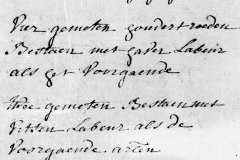 Vier gemeten hondert roeden
Bestaen met haver Labeur
als het Voorgaende
Twee gemeten Bestaen met
Vitsen Labeur als de
Voorgaende arten